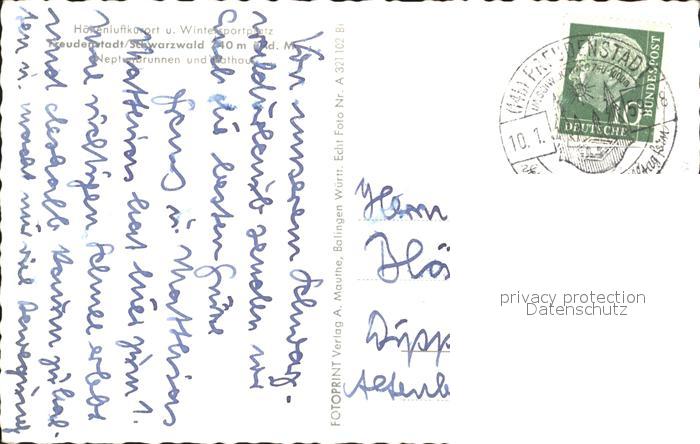 Höhenluftkurort u. Wintersportplatz
Freudenstadt/Schwarzwald 740 m ü. d. M.
Neptunbrunnen und Rathaus
Von unserem Schwarz-
waldurlaub senden wir
Euch die besten Grüße
Heinz u. Matthias
Matthias hat hier zum 1.
mal richtigen Schnee erlebt
und ist deshalb kaum zu hal-
ten u. macht mir viel
FOTOPRINT Verlag A. Mauthe, Balingen Württ. Echt Foto Nr. A 321 102 Bi
Herrn
Dipp
Altenb
FREUDENSTADT
10. 1.
10
DEUTSCHE
BUNDESPOST
privacy protection
Datenschutz